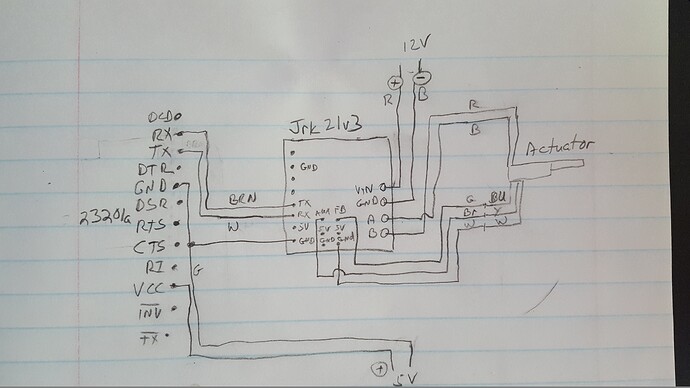 12V
+
-
R
B
OCD
RX
TX
DTR
GND
DSR
23201a
RTS
CTS
RI
VCC
INV
TX
BRN
W
G
Jrk 21v3
GND
TX
RX
5V
GND
AUX
FB
5V
5V
GND
GND
VIN
GND
A
B
R
B
Actuator
G
BU
BR
Y
W
W
+
5V